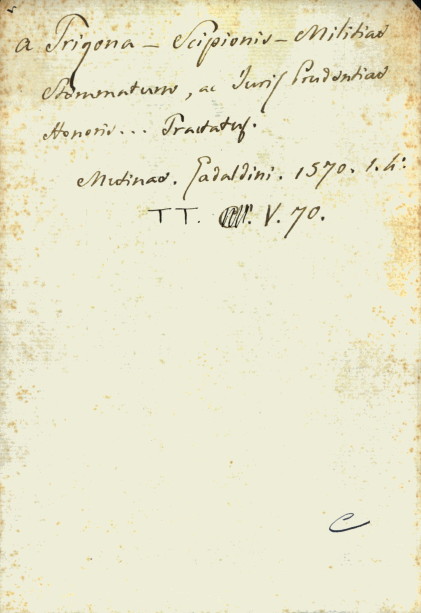 a Trigona - Scipionis - Militiae
Stemmatum, ac Juris Prudentiae
Honoris... Tractatus.
Mutinae. Gadaldini. 1570. 1. 4°:
TT. V. 70.
C